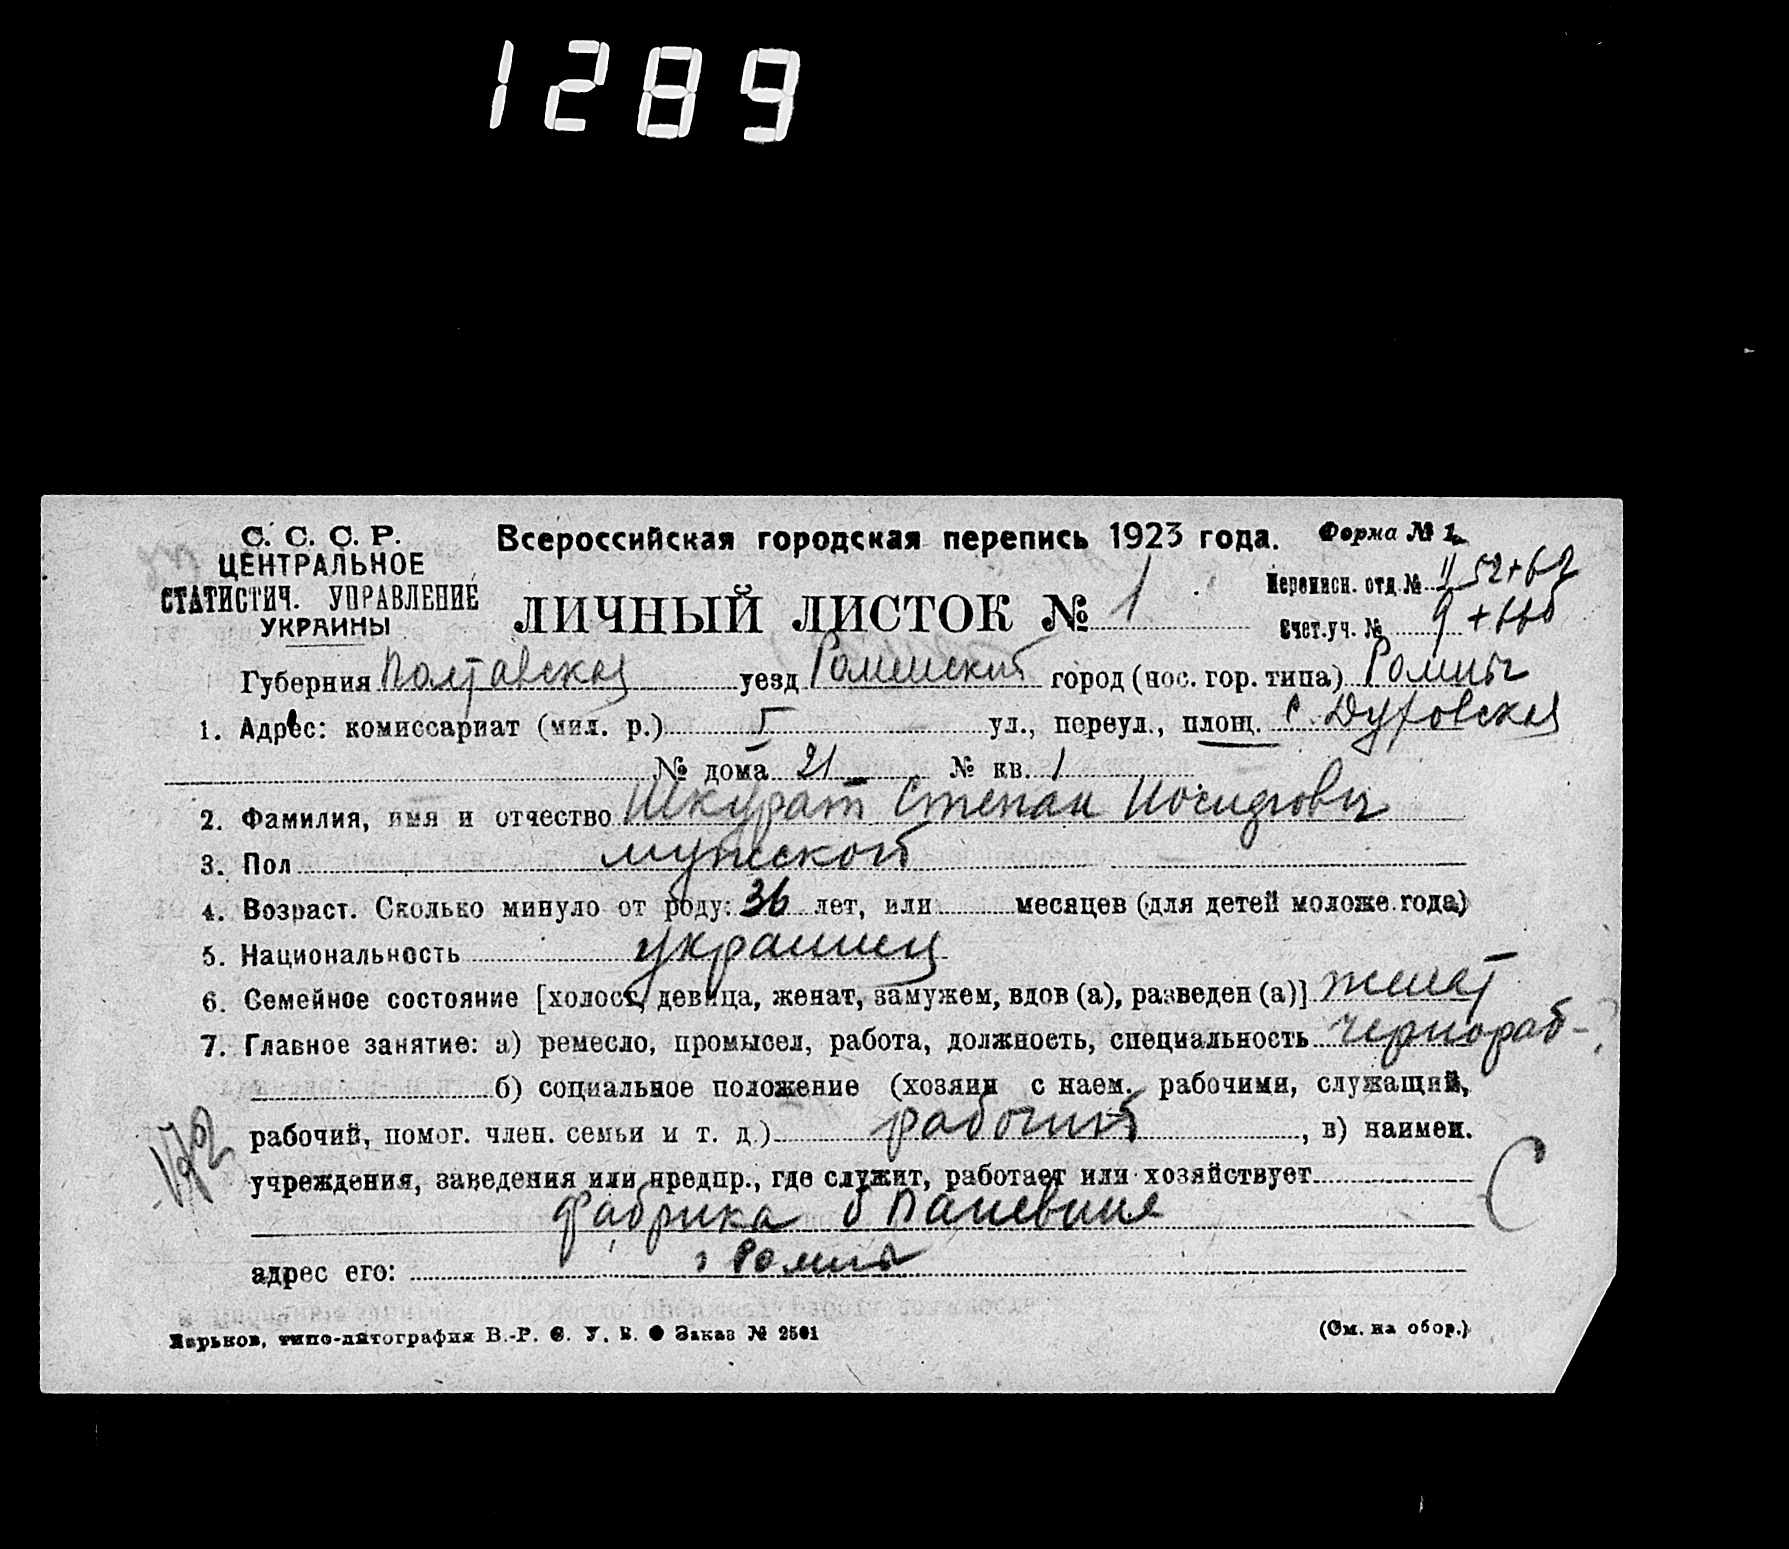 1289
С. С. С. Р.
ЦЕНТРАЛЬНОЕ
СТАТИСТИЧ. УПРАВЛЕНИЕ
УКРАИНЫ
Всероссийская городская перепись 1923 года.
Форма № 1.
ЛИЧНЫЙ ЛИСТОК № 1
Переписн. отд. № II 52+62
Счет. уч. № 9
Губерния Полтавская уезд Роменский город (пос. гор. типа) Ромны
1. Адрес: комиссариат (мил. р.) ул., переул., площ.
№ дома 21 № кв. 1
2. Фамилия, имя и отчество Шкурат Степан Иосифович
3. Пол мужской
4. Возраст. Сколько минуло от роду: 36 лет, или месяцев (для детей моложе года)
5. Национальность украинец
6. Семейное состояние [холост, девица, женат, замужем, вдов (а), разведен (а)] женат
7. Главное занятие: а) ремесло, промысел, работа, должность, специальность чернораб-
б) социальное положение (хозяин с наем. рабочими, служащий,
рабочий, помог. член. семьи и т. д.) рабочий, в) наимен.
учреждения, заведения или предпр., где служит, работает или хозяйствует
фабрика б
адрес его: г Ромны
Харьков, типо-литография В.-Р. С. У. В. Заказ № 2501
(См. на обор.)